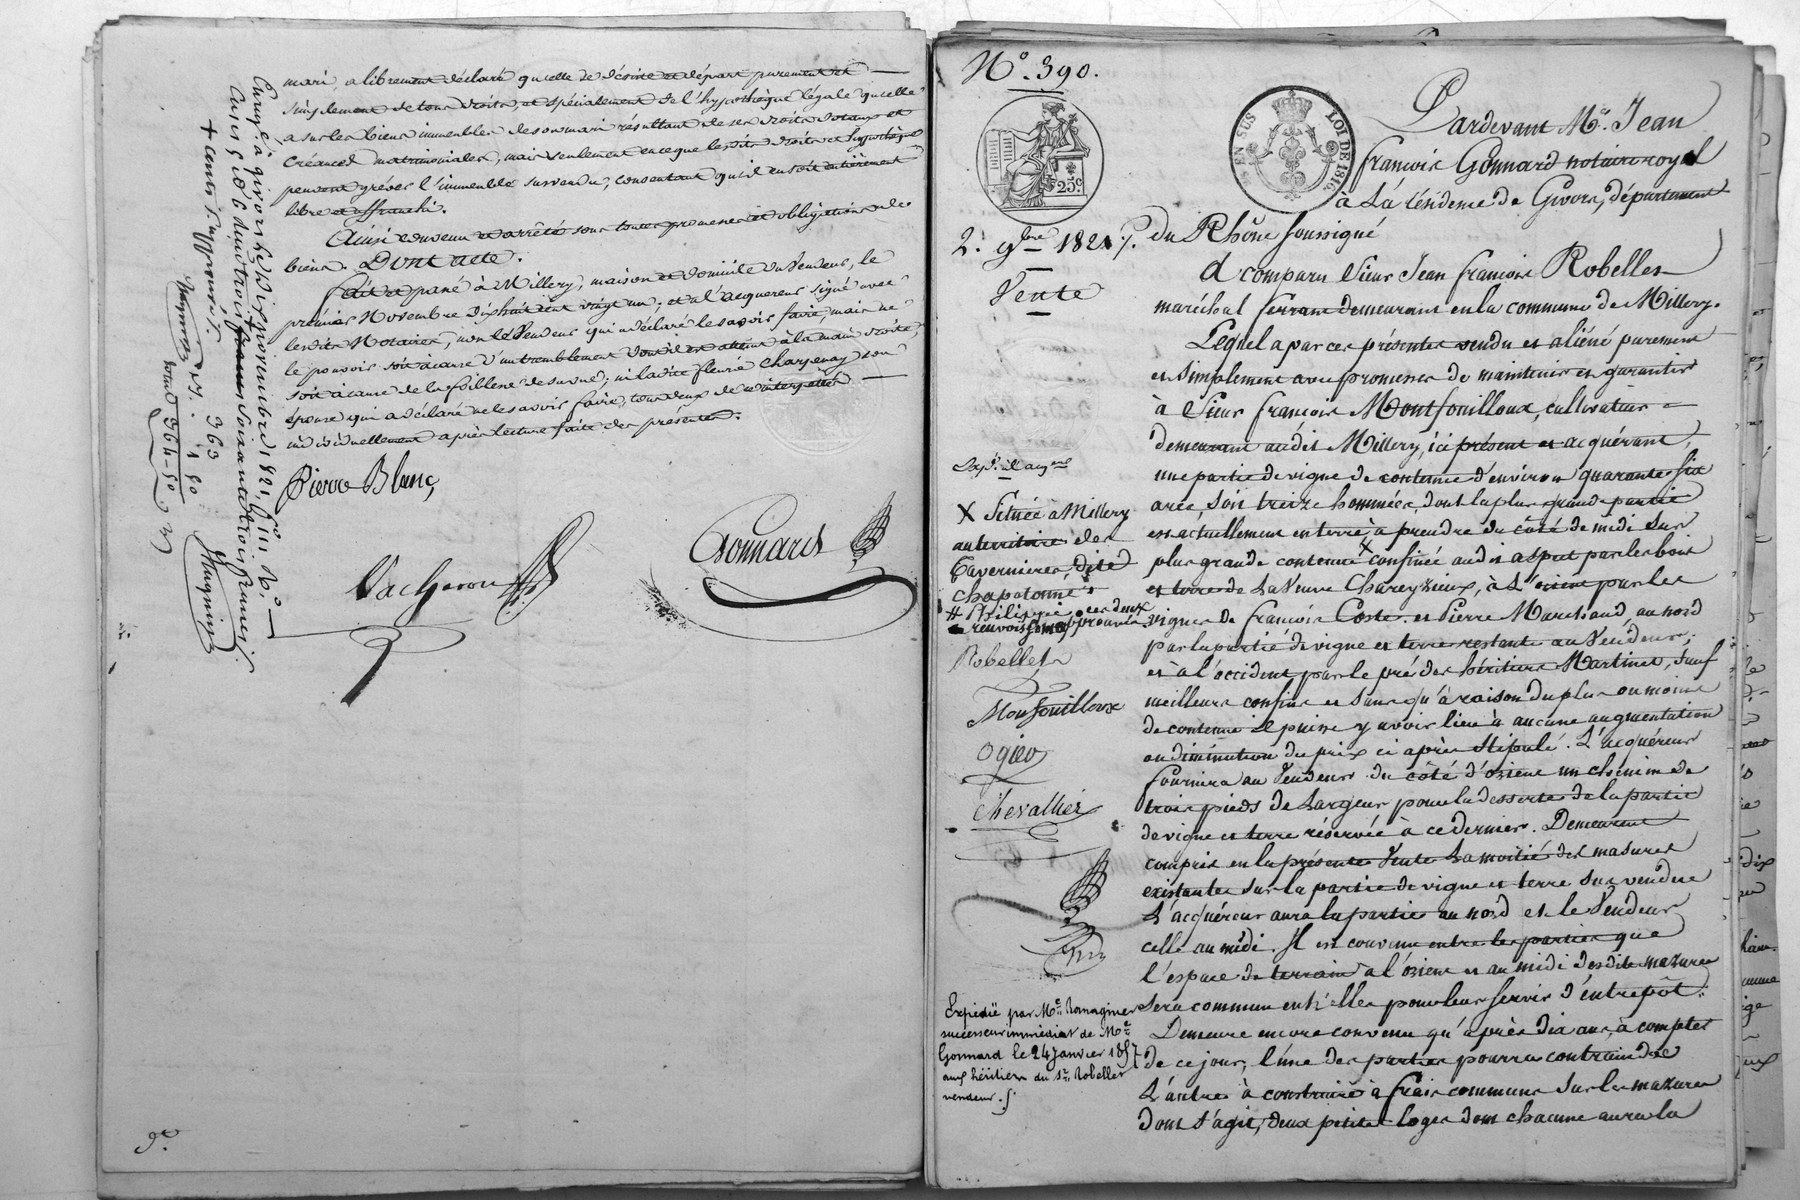 mari, a librement déclaré qu'elle se désiste et départ purement et
simplement de tous droits, et spécialement de l'hypothèque légale qu'elle
a sur les biens immeubles de son mari résultant de ses droits dotaux et
créances matrimoniales, mais seulement en ce que lesdits droits et hypothèque
peuvent gréver l'immeuble susvendu, consentant qu'il en soit entièrement
libre et affranchi.
Ainsi convenu et arrêté sous toutes promesses et obligations de
biens. Dont acte.
fait et passé à Millery, maison et domicile du Vendeur, le
premier Novembre dix huit cent vingt un; et a l'acquereur signé avec
les dits Notaires, non le Vendeur qui a déclaré le savoir faire, mais ne
le pouvoir soit à cause d'un tremblement dont il est atteint à la main droite,
soit à cause de la foiblesse de sa vue; ni ladite fleurie Charpenay son
épouse qui a déclaré ne le savoir faire, tous deux de ce interpellés
individuellement après lecture faite des présentes.
Pierre Blanc,
Vacheron
Gonnard
Enreg.é à givors le dix novembre 1821, f.o 111. R.o
Cases 5 et 6 deux trois francs soixante trois francs
+ cents supprimés.
363
1 50
364-50
9e.
N.o 390.
25c
EN SUS
LOI DE 1816
2. 9bre 1821.
Vente
Pardevant M.e Jean
françois Gonnard notaire royal
à La résidence de Givors, département
du Rhône soussigné
A comparu Sieur Jean françois Robelles
maréchal ferrant demeurant en la commune de Millery.
Lequel a par ces présentes vendu et aliéné purement
et simplement avec promesse de maintenir et garantir
à Sieur françois Montfouilloux, cultivateur
demeurant audit Millery, ici présent et acquérant,
une partie de vigne de contenue d'environ quarante six
ares, soit treize hommées, dont la plus grande partie
est actuellement en terre, à prendre du côté de midi sur
plus grande contenue X confinée audit aspect par les bois
et terre de La Veuve Chareyzieux, à L'orient par les
vignes de françois Coste. et Pierre Marchand au nord
par la partie de vigne et terre restante au Vendeur;
et à l'occident par le pré des héritiers Martinet, sauf
meilleurs confins et sans qu'à raison du plus ou moins
de contenue il puisse y avoir lieu à aucune augmentation
ou diminution du prix ci après stipulé. L'acquéreur
fournira au Vendeur du côté d'orient un chemin de
trois pieds de Largeur pour la desserte de la partie
de vigne et terre réservée à ce dernier. Demeurent
compris en la présente Vente La moitié des masures
existantes sur la partie de vigne et terre sus vendue
L'acquéreur aura la partie au nord et le Vendeur
celle au midi. Il est convenu entre les parties que
l'espace de terrain à l'orient et au midi desdites mazures
sera commun entr'elles pour leur servir d'entrepôt.
Demeure encore convenu qu'après dix ans, à compter
de ce jour, l'une des parties pourra contraindre
L'autre à construire à frais communs sur les mazures
dont s'agit, deux petites loges dont chacune aura la
X Située à Millery
au territoire des
Tavernieres, dite
Chapotonne
# Philippe
ces deux
renvois sont approuvés
Robelles
Monfouilloux
Ogier
Chevallier
Expédié par M.e Romagnier
successeur immédiat de M.e
Gonnard le 24 janvier 1857
aux héritiers du S.r Robelles
vendeur.